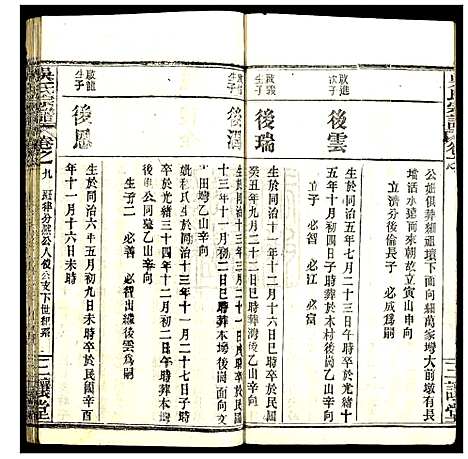 公妣俱葬細瑶壩下面向細萬家塆大前墩有長
塆活水遶而來朝故立寅山申向
立濟公之後倫長子 必成爲嗣
啟進
生子
後雲
生於同治五年七月二十三日午時卒於光緒十
五年十月初四日子時葬於本村後崗乙山辛向
立子 必江 必富
爲嗣 必善
啟義
生子
後瑞
癸丑年九月二十日巳時葬灣後崗乙山辛向
後潤
生於同治十一年十月二十一日戌時卒於民國
十三年十一月初二日巳時葬
田塆乙山辛向
氏生於同治十三年十一月二十七日子時
卒於光緒三十四年十二月初六日午時葬本塆
後公同墓乙山辛向
生子二 必善 必智出繼後雲爲嗣
啟龍
生子
後恩
生於同治六年五月初九日未時卒於民國辛酉
年十一月十六日未時
吳氏宗譜
卷之九
三讓堂